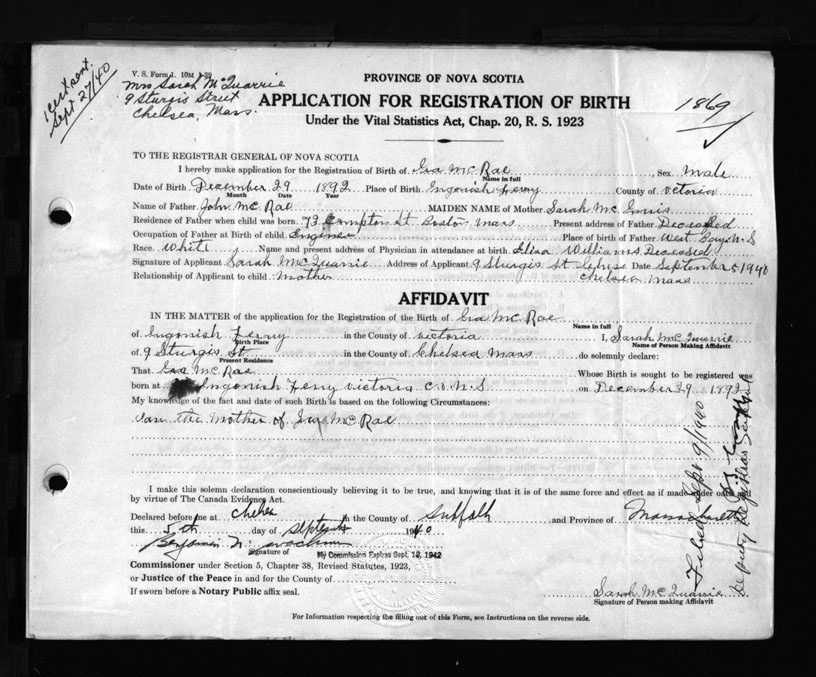 1 cert. sent.
Sept 27/40
V. S. Form 1. 10M
Mrs Sarah McQuarrie
9 Sturgis Street
Chelsea, Mass.
PROVINCE OF NOVA SCOTIA
APPLICATION FOR REGISTRATION OF BIRTH
Under the Vital Statistics Act, Chap. 20, R. S. 1923
1869
TO THE REGISTRAR GENERAL OF NOVA SCOTIA
I hereby make application for the Registration of Birth of McRae Sex male
Name in full
Date of Birth December 29 1892 Place of Birth Ingonish Ferry County of Victoria
Month Date Year
Name of Father John McRae MAIDEN NAME of Mother Sarah McInnis
Residence of Father when child was born 73 Compton St Boston Mass Present address of Father Deceased
Occupation of Father at Birth of child Place of birth of Father West Bay N.S
Race White Name and present address of Physician in attendance at birth Williams Deceased
Signature of Applicant Sarah McQuarrie Address of Applicant 9 Sturgis St Date September 5 1940
Relationship of Applicant to child mother Chelsea Mass
AFFIDAVIT
IN THE MATTER of the application for the Registration of the Birth of McRae
Name in full
of Ingonish Ferry in the County of victoria I, Sarah McQuarrie
Birth Place Name of Person Making Affidavit
of 9 Sturgis St in the County of Chelsea Mass do solemnly declare:
Present Residence
That McRae Whose Birth is sought to be registered was
born at Ingonish Ferry victoria c.o N.S on December 29 1892
My knowledge of the fact and date of such Birth is based on the following Circumstances:
I am the mother of McRae
I make this solemn declaration conscientiously believing it to be true, and knowing that it is of the same force and effect as if made under oath and
by virtue of The Canada Evidence Act.
Declared before me at Chelsea in the County of Suffolk and Province of Massachusetts
this 5th day of September 1940
Benjamin
Signature of My Commission Expires Sept. 12, 1942
Commissioner under Section 5, Chapter 38, Revised Statutes, 1923,
or Justice of the Peace in and for the County of
If sworn before a Notary Public affix seal.
Sarah McQuarrie
Signature of Person making Affidavit
For Information respecting the filling out of this Form, see Instructions on the reverse side.
Filed Sept 9/1940
Deputy Reg